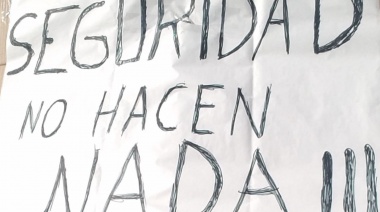 SEGURIDAD
NO HACEN
NADA !!!